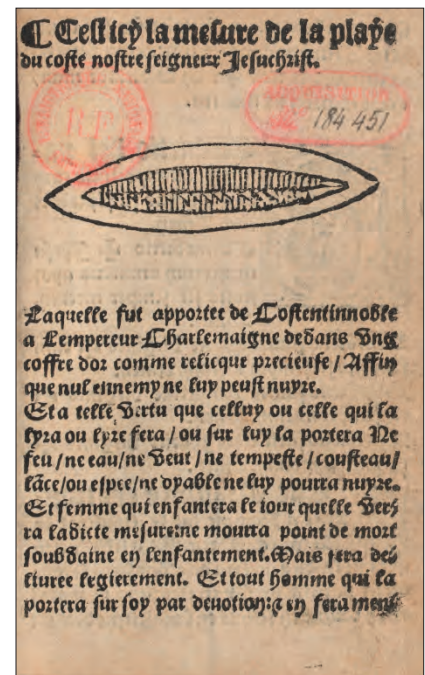 ¶ Cest icy la mesure de la playe
du coste nostre seigneur Jesuchrist.
184 451
Laquelle fut apportee de Costentinnoble
a Lempereur Charlemaigne dedans Ung
coffre dor comme relicque precieuse / Affin
que nul ennemy ne luy peust nuyre.
Et a telle Vertu que celluy ou celle qui la
lyra ou lyre fera / ou sur luy la portera Ne
feu / ne eau / ne Vent / ne tempeste / cousteau /
lãce / ou espee / ne dyable ne luy pourra nuyre.
Et femme qui enfantera le iour quelle Ver-
ra ladicte mesure: ne mourra point de mort
soubdaine en lenfantement. Mais sera des
liuree legierement. Et tout homme qui la
portera sur soy par deuotion: a en fera